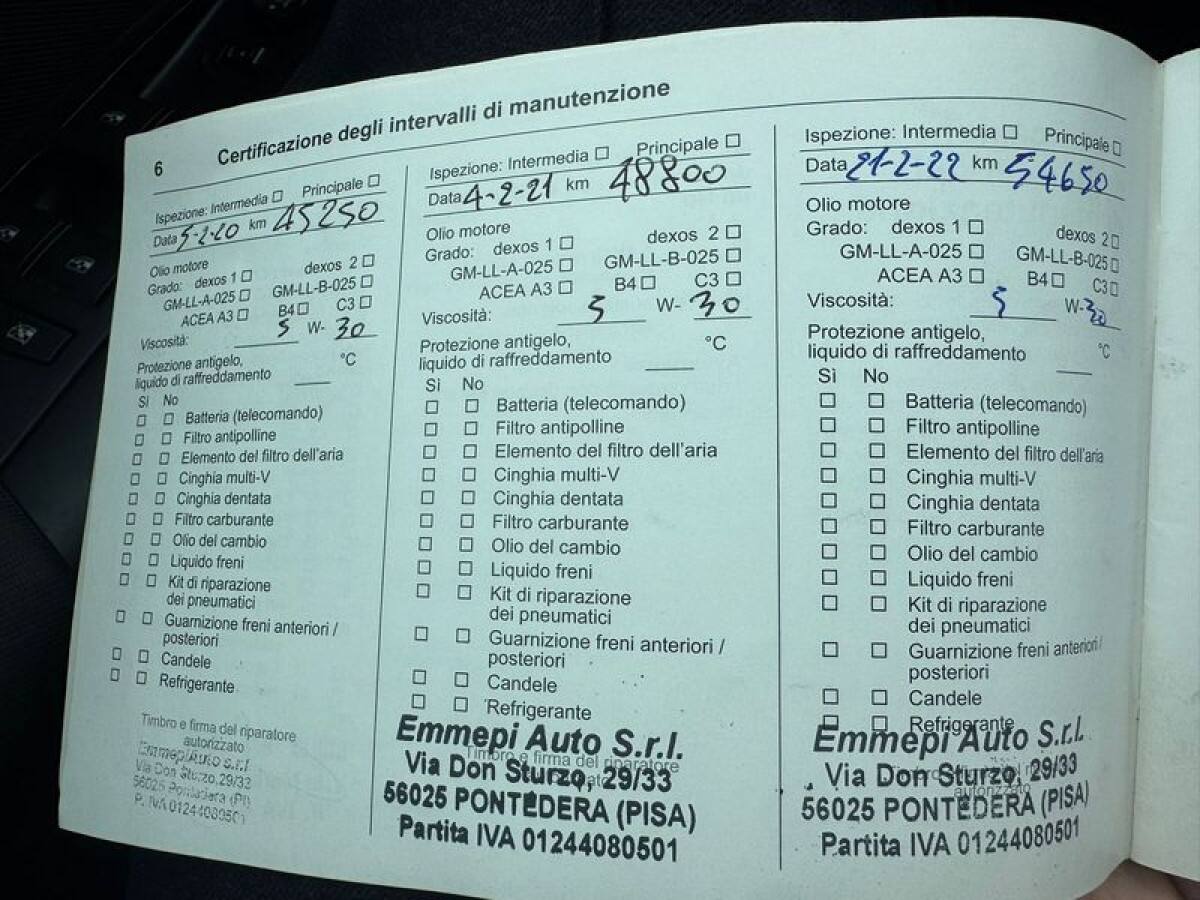 6
Certificazione degli intervalli di manutenzione
Ispezione: Intermedia ☐ Principale ☐
Data 5-2-20 km 45250
Olio motore
Grado: dexos 1 ☐ dexos 2 ☐
GM-LL-A-025 ☐ GM-LL-B-025 ☐
ACEA A3 ☐ B4 ☐ C3 ☐
Viscosità: 5 W- 30
Protezione antigelo,
liquido di raffreddamento ___ °C
Sì No
☐ ☐ Batteria (telecomando)
☐ ☐ Filtro antipolline
☐ ☐ Elemento del filtro dell'aria
☐ ☐ Cinghia multi-V
☐ ☐ Cinghia dentata
☐ ☐ Filtro carburante
☐ ☐ Olio del cambio
☐ ☐ Liquido freni
☐ ☐ Kit di riparazione
dei pneumatici
☐ ☐ Guarnizione freni anteriori /
posteriori
☐ ☐ Candele
☐ ☐ Refrigerante
Timbro e firma del riparatore
autorizzato
Emmepi Auto s.r.l.
Via Don Sturzo, 29/33
56025 Pontedera (PI)
P. IVA 01244080501
Ispezione: Intermedia ☐ Principale ☐
Data 4-2-21 km 48800
Olio motore
Grado: dexos 1 ☐ dexos 2 ☐
GM-LL-A-025 ☐ GM-LL-B-025 ☐
ACEA A3 ☐ B4 ☐ C3 ☐
Viscosità: 5 W- 30
Protezione antigelo,
liquido di raffreddamento ___ °C
Sì No
☐ ☐ Batteria (telecomando)
☐ ☐ Filtro antipolline
☐ ☐ Elemento del filtro dell'aria
☐ ☐ Cinghia multi-V
☐ ☐ Cinghia dentata
☐ ☐ Filtro carburante
☐ ☐ Olio del cambio
☐ ☐ Liquido freni
☐ ☐ Kit di riparazione
dei pneumatici
☐ ☐ Guarnizione freni anteriori /
posteriori
☐ ☐ Candele
☐ ☐ Refrigerante
Emmepi Auto S.r.l.
Timbro e firma del riparatore
Via Don Sturzo, 29/33
56025 PONTEDERA (PISA)
Partita IVA 01244080501
Ispezione: Intermedia ☐ Principale ☐
Data 21-2-22 km 54650
Olio motore
Grado: dexos 1 ☐ dexos 2 ☐
GM-LL-A-025 ☐ GM-LL-B-025 ☐
ACEA A3 ☐ B4 ☐ C3 ☐
Viscosità: 5 W- 30
Protezione antigelo,
liquido di raffreddamento ___ °C
Sì No
☐ ☐ Batteria (telecomando)
☐ ☐ Filtro antipolline
☐ ☐ Elemento del filtro dell'aria
☐ ☐ Cinghia multi-V
☐ ☐ Cinghia dentata
☐ ☐ Filtro carburante
☐ ☐ Olio del cambio
☐ ☐ Liquido freni
☐ ☐ Kit di riparazione
dei pneumatici
☐ ☐ Guarnizione freni anteriori /
posteriori
☐ ☐ Candele
☐ ☐ Refrigerante
Emmepi Auto S.r.l.
Via Don Sturzo, 29/33
autorizzato
56025 PONTEDERA (PISA)
Partita IVA 01244080501